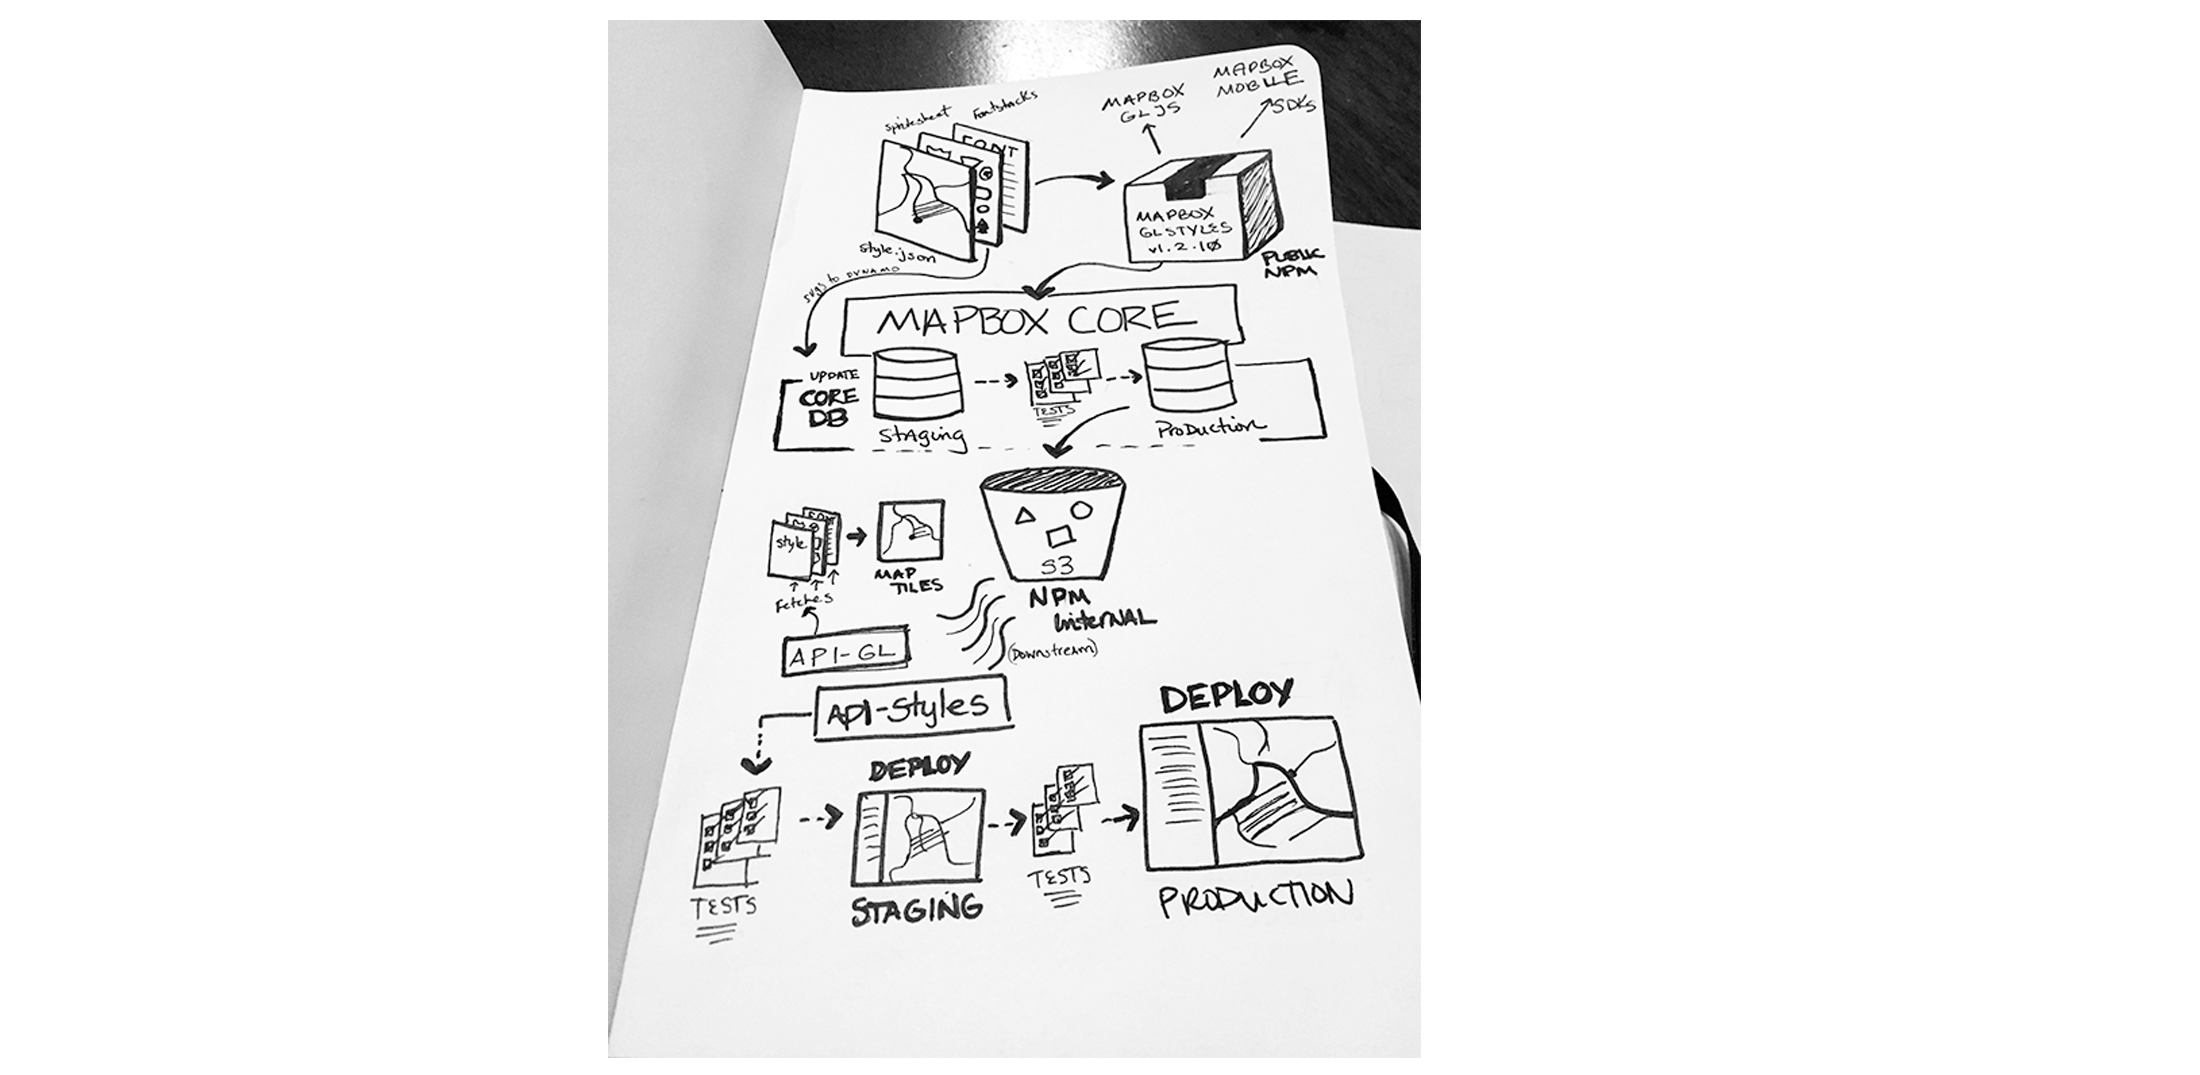 spritesheet
Fontstacks
FONT
style.json
MAPBOX
GL JS
MAPBOX
MOBILE
SDKs
MAPBOX
GL STYLES
v1.2.10
PUBLIC
NPM
svgs to DYNAMO
MAPBOX CORE
UPDATE
CORE
DB
StAging
TESTS
ProDuction
style
Fetches
MAP
TILES
S3
NPM
InterNAL
(Downstream)
API-GL
Api-Styles
TESTS
DEPLOY
STAGING
TESTS
DEPLOY
PRODUCTION